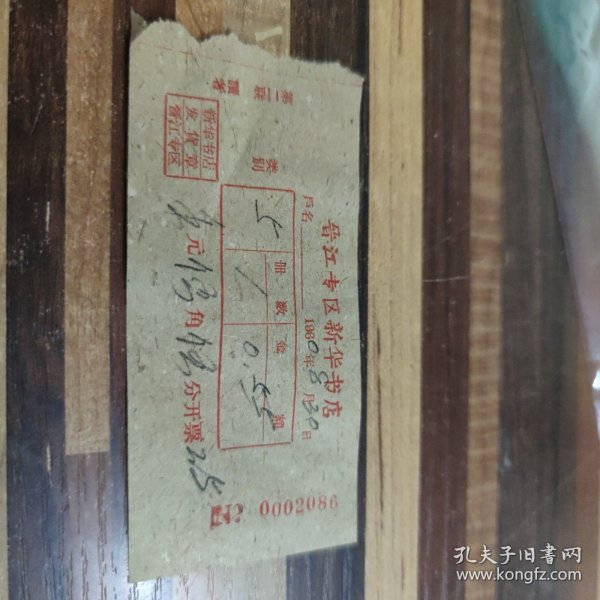 晋江专区新华书店
户名 1960年8月30日
类别 册数 金额
5 1 0.55
元 伍角伍分开票
第二联
新华书店
发货章
晋江专区
0002086
孔夫子旧书网
www.kongfz.com